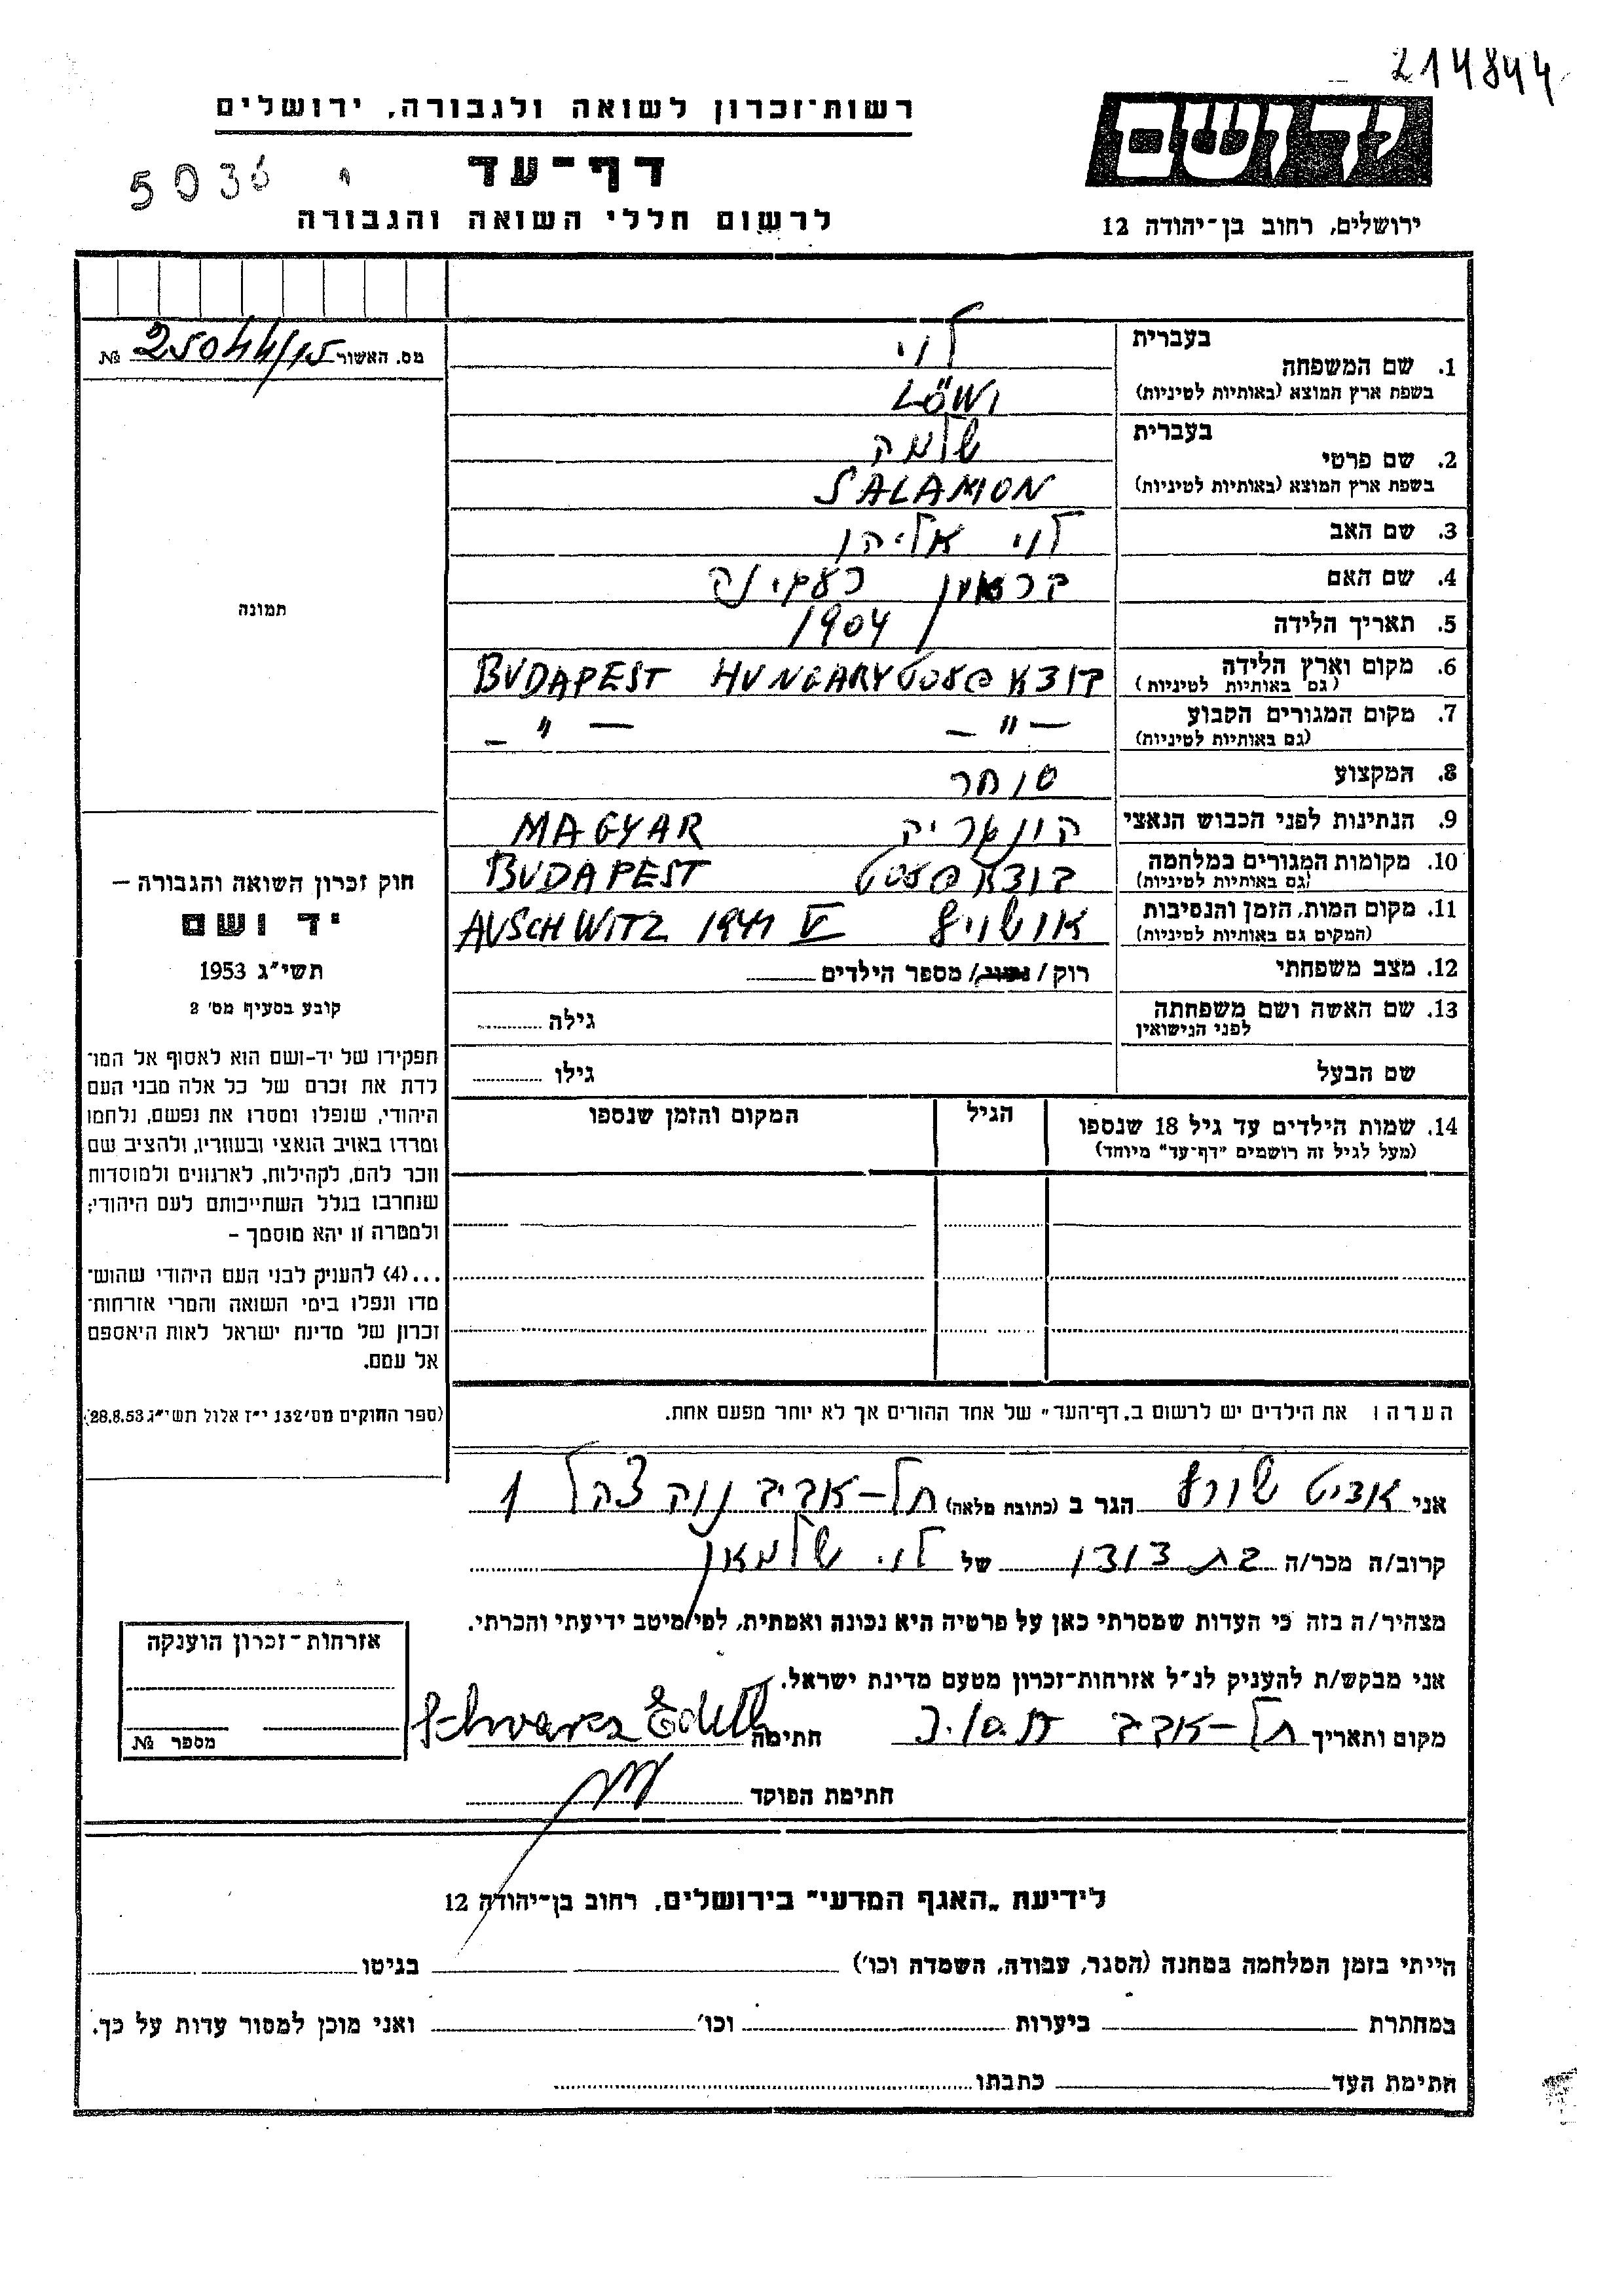 214844
רשות־זכרון לשואה ולגבורה, ירושלים
דף־עד
לרשום חללי השואה והגבורה
5036
יד ושם
ירושלים, רחוב בן־יהודה 12
מס. האשור 25044/15 №
תמונה
חוק זכרון השואה והגבורה —
יד ושם
תשי״ג 1953
קובע בסעיף מס׳ 2
תפקידו של יד-ושם הוא לאסוף אל המו־
לדת את זכרם של כל אלה מבני העם
היהודי, שנפלו ומסרו את נפשם, נלחמו
ומרדו באויב הנאצי ובעוזריו, ולהציב שם
וזכר להם, לקהילות, לארגונים ולמוסדות
שנחרבו בגלל השתייכותם לעם היהודי;
ולמטרה זו יהא מוסמך –
...(4) להעניק לבני העם היהודי שהוש־
מדו ונפלו בימי השואה והמרי אזרחות־
זכרון של מדינת ישראל לאות היאספם
אל עמם.
(ספר החוקים מס׳ 132 י״ז אלול תשי״ג 28.8.53)
בעברית לוי
1. שם המשפחה
בשפת ארץ המוצא (באותיות לטיניות) LÖWI
בעברית שלמה
2. שם פרטי
בשפת ארץ המוצא (באותיות לטיניות) SALAMON
3. שם האב לוי אליהו
4. שם האם
5. תאריך הלידה 1904
6. מקום וארץ הלידה בודאפעסט BUDAPEST HUNGARY
(גם באותיות לטיניות)
7. מקום המגורים הקבוע — ״ — — ״ —
(גם באותיות לטיניות)
8. המקצוע סוחר
9. הנתינות לפני הכבוש הנאצי הונגריה MAGYAR
10. מקומות המגורים במלחמה בודאפעסט BUDAPEST
(גם באותיות לטיניות)
11. מקום המות, הזמן והנסיבות אושויץ AUSCHWITZ 1944 V
(המקום גם באותיות לטיניות)
12. מצב משפחתי רוק / נשוי / מספר הילדים
13. שם האשה ושם משפחתה גילה
לפני הנישואין
שם הבעל גילו
14. שמות הילדים עד גיל 18 שנספו הגיל המקום והזמן שנספו
(מעל לגיל זה רושמים "דף־עד" מיוחד)
הערה: את הילדים יש לרשום ב„דף־העד״ של אחד ההורים אך לא יותר מפעם אחת.
אני אדיט שורץ הגר ב (כתובת מלאה) תל-אביב נוה צהל 1
קרוב/ה מכר/ה בת דודו של לוי שלמאן
מצהיר/ה בזה כי העדות שמסרתי כאן על פרטיה היא נכונה ואמתית, לפי מיטב ידיעתי והכרתי.
אני מבקש/ת להעניק לנ״ל אזרחות־זכרון מטעם מדינת ישראל.
מקום ותאריך תל-אביב חתימה Schwarcz Edith
חתימת הפוקד
אזרחות־זכרון הוענקה
מספר №
לידיעת „האגף המדעי״ בירושלים, רחוב בן־יהודה 12
הייתי בזמן המלחמה במחנה (הסגר, עבודה, השמדה וכו׳) בגיטו
במחתרת ביערות וכו׳ ואני מוכן למסור עדות על כך.
חתימת העד כתבתו